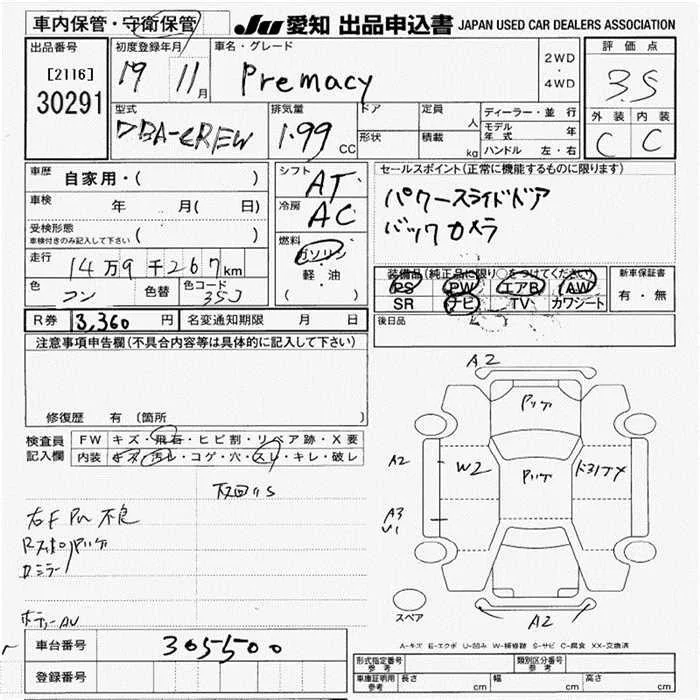 車内保管・守衛保管
JU 愛知 出品申込書 JAPAN USED CAR DEALERS ASSOCIATION
出品番号
[2116]
30291
初度登録年月
19 11月
車名・グレード
Premacy
2WD
・
4WD
評価点
3.5
外装 内装
C C
型式
DBA-CREW
排気量
1.99 CC
ドア
定員 人
形状
積載 kg
ディーラー・並行
モデル年式 年
ハンドル 左・右
車歴 自家用・( )
車検 年 月( 日)
受検形態
車検付きのみ記入して下さい ( )
走行 14万9千267km
色 コン 色替 色コード 35J
シフト AT
冷房 AC
燃料
ガソリン
軽・油
( )
セールスポイント(正常に機能するものに限ります)
パワースライドドア
バックカメラ
装備品(純正品に限り○をつけてください)
PS PW エアB AW
SR ナビ TV カワシート
新車保証書
有・無
後日品
R券 3,360円 名変通知期限 月 日
注意事項申告欄(不具合内容等は具体的に記入して下さい)
修復歴 有 (箇所
検査員記入欄
FW キズ・飛石・ヒビ割・リペア跡・X要
内装 キズ・汚レ・コゲ・穴・スレ・キレ・破レ
下回りS
右F PW 不良
ドミラー
ボディーAU
A2
A2
W2
A3
A2
スペア
A-キズ E-エクボ U-凹み W-補修跡 S-サビ C-腐食 XX-交換済
車台番号 305500
登録番号
形式指定番号 参考
類別区分番号 参考
車庫証明用 参考 長さ cm 幅 cm 高さ cm